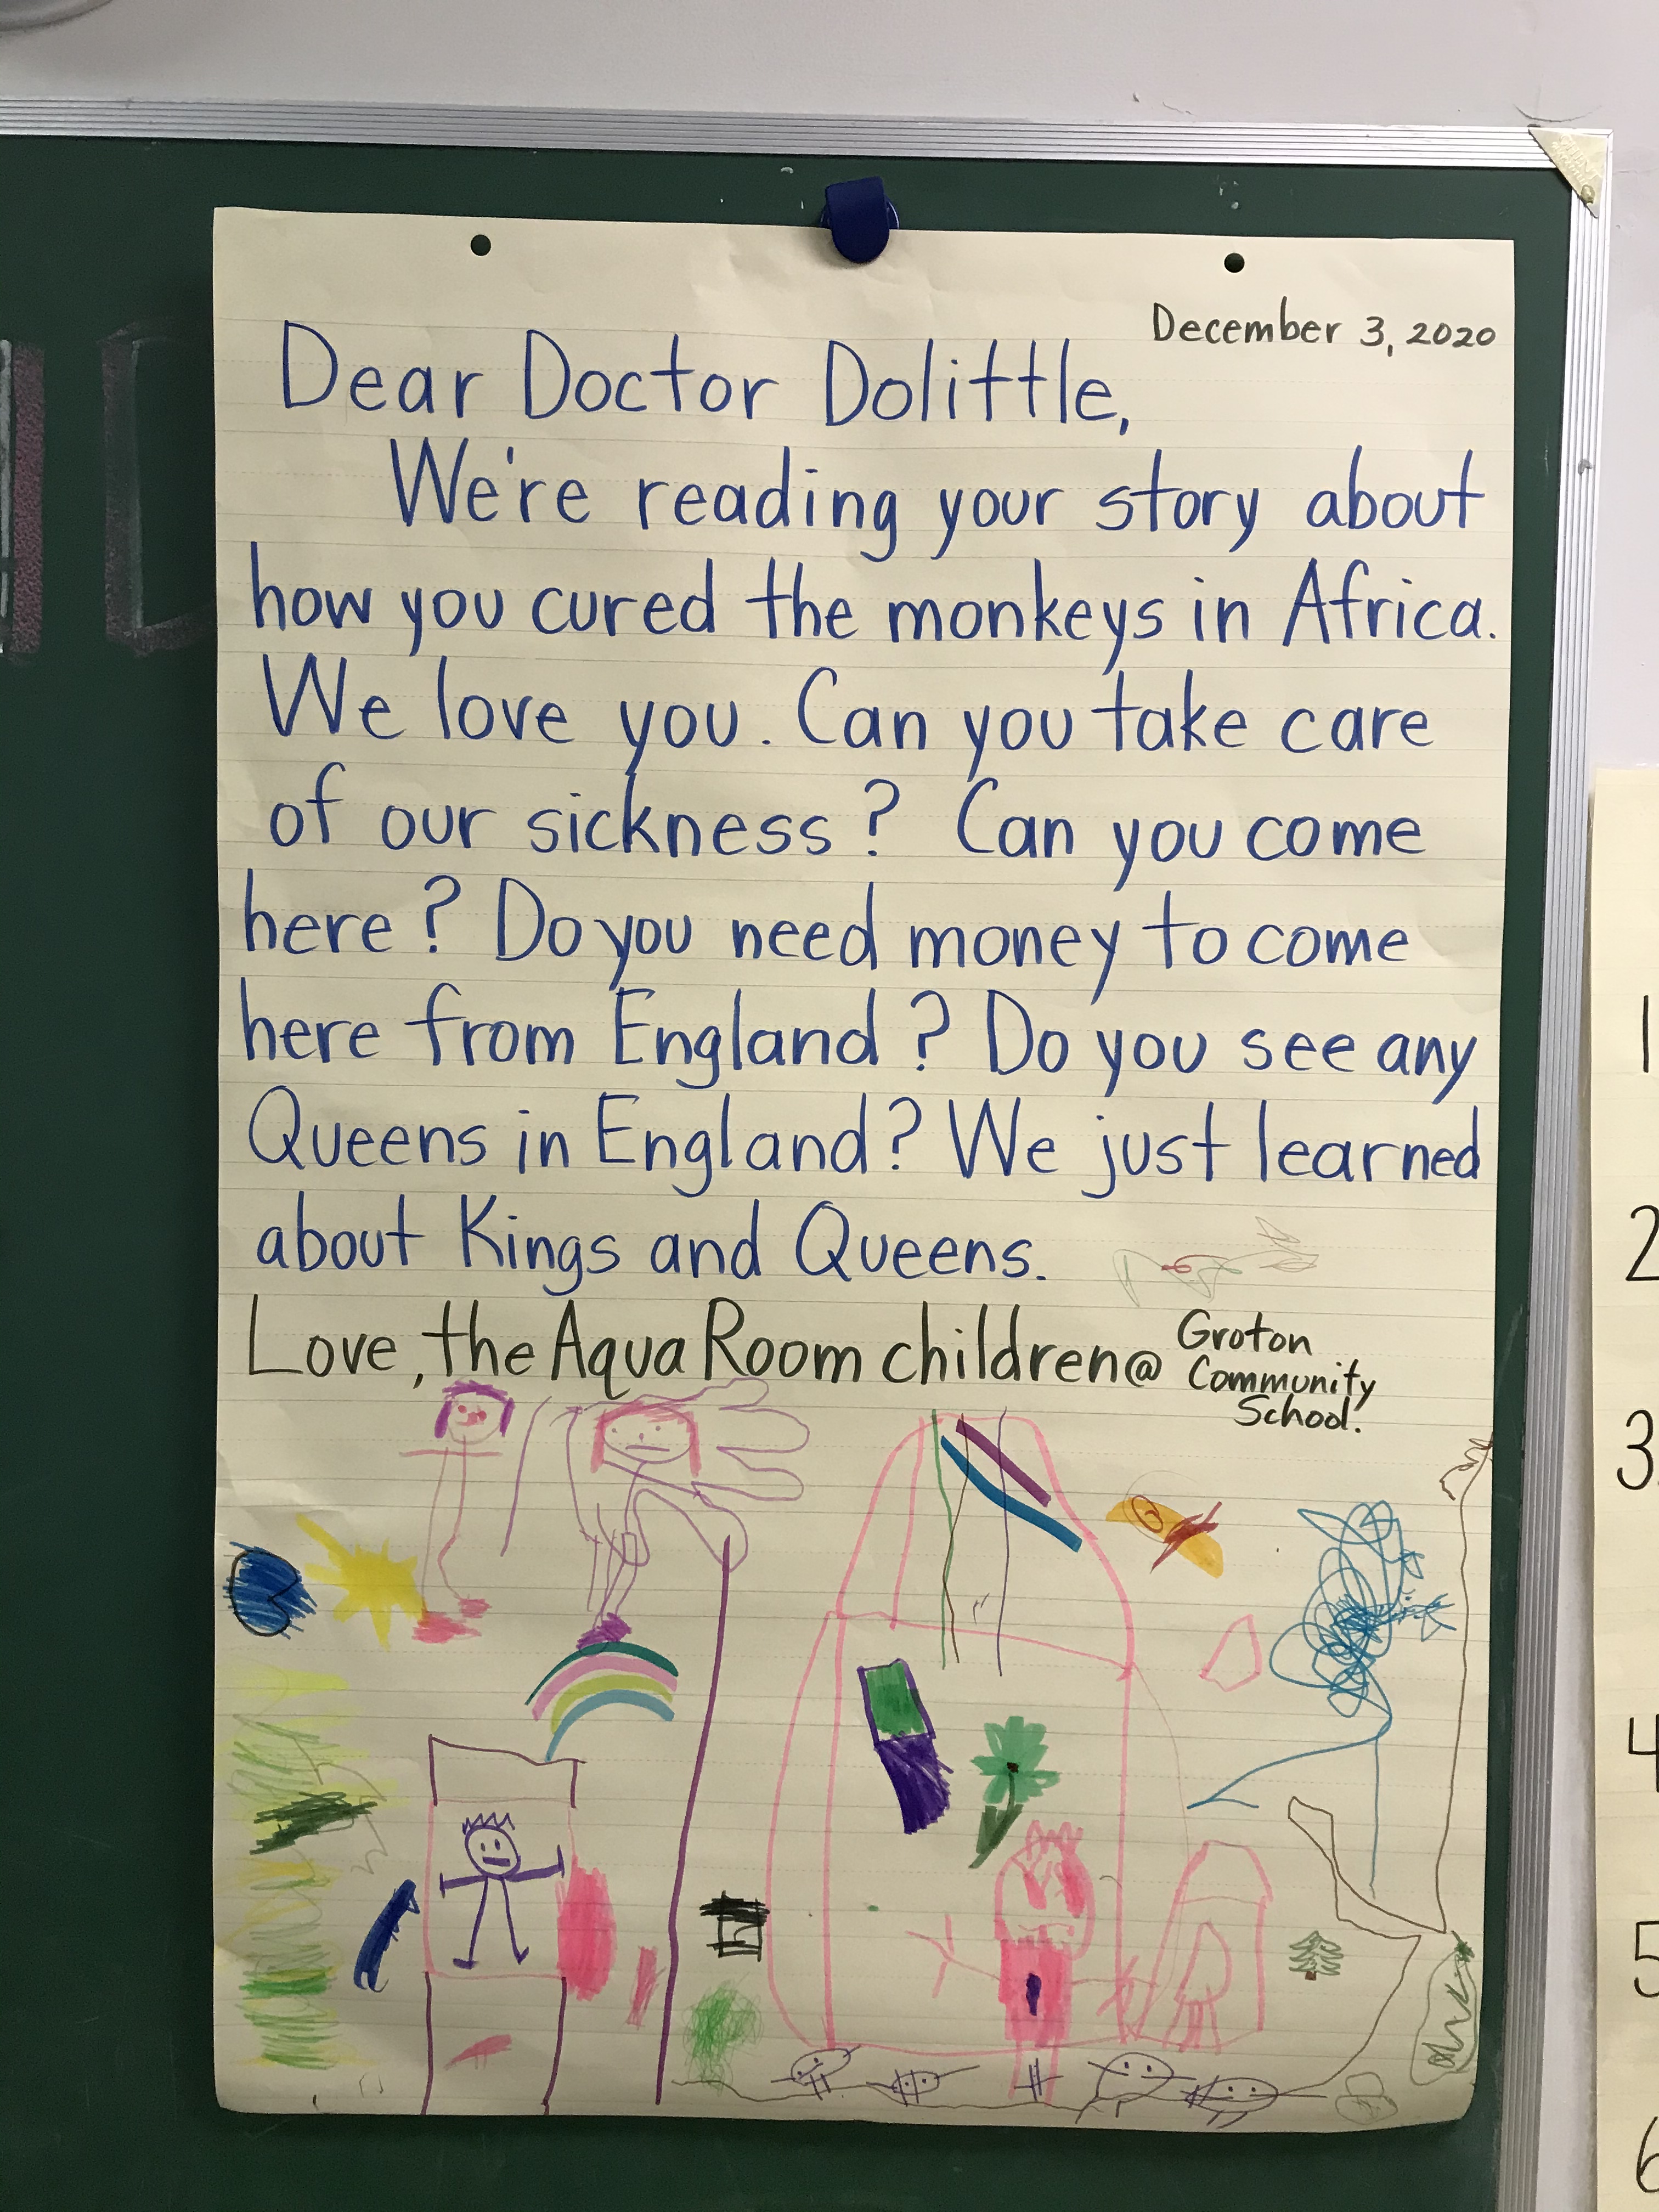 December 3, 2020
Dear Doctor Dolittle,
We're reading your story about
how you cured the monkeys in Africa.
We love you. Can you take care
of our sickness? Can you come
here? Do you need money to come
here from England? Do you see any
Queens in England? We just learned
about Kings and Queens.
Love, the Aqua Room children@ Groton
Community
School!
1
2
3.
4
5
6